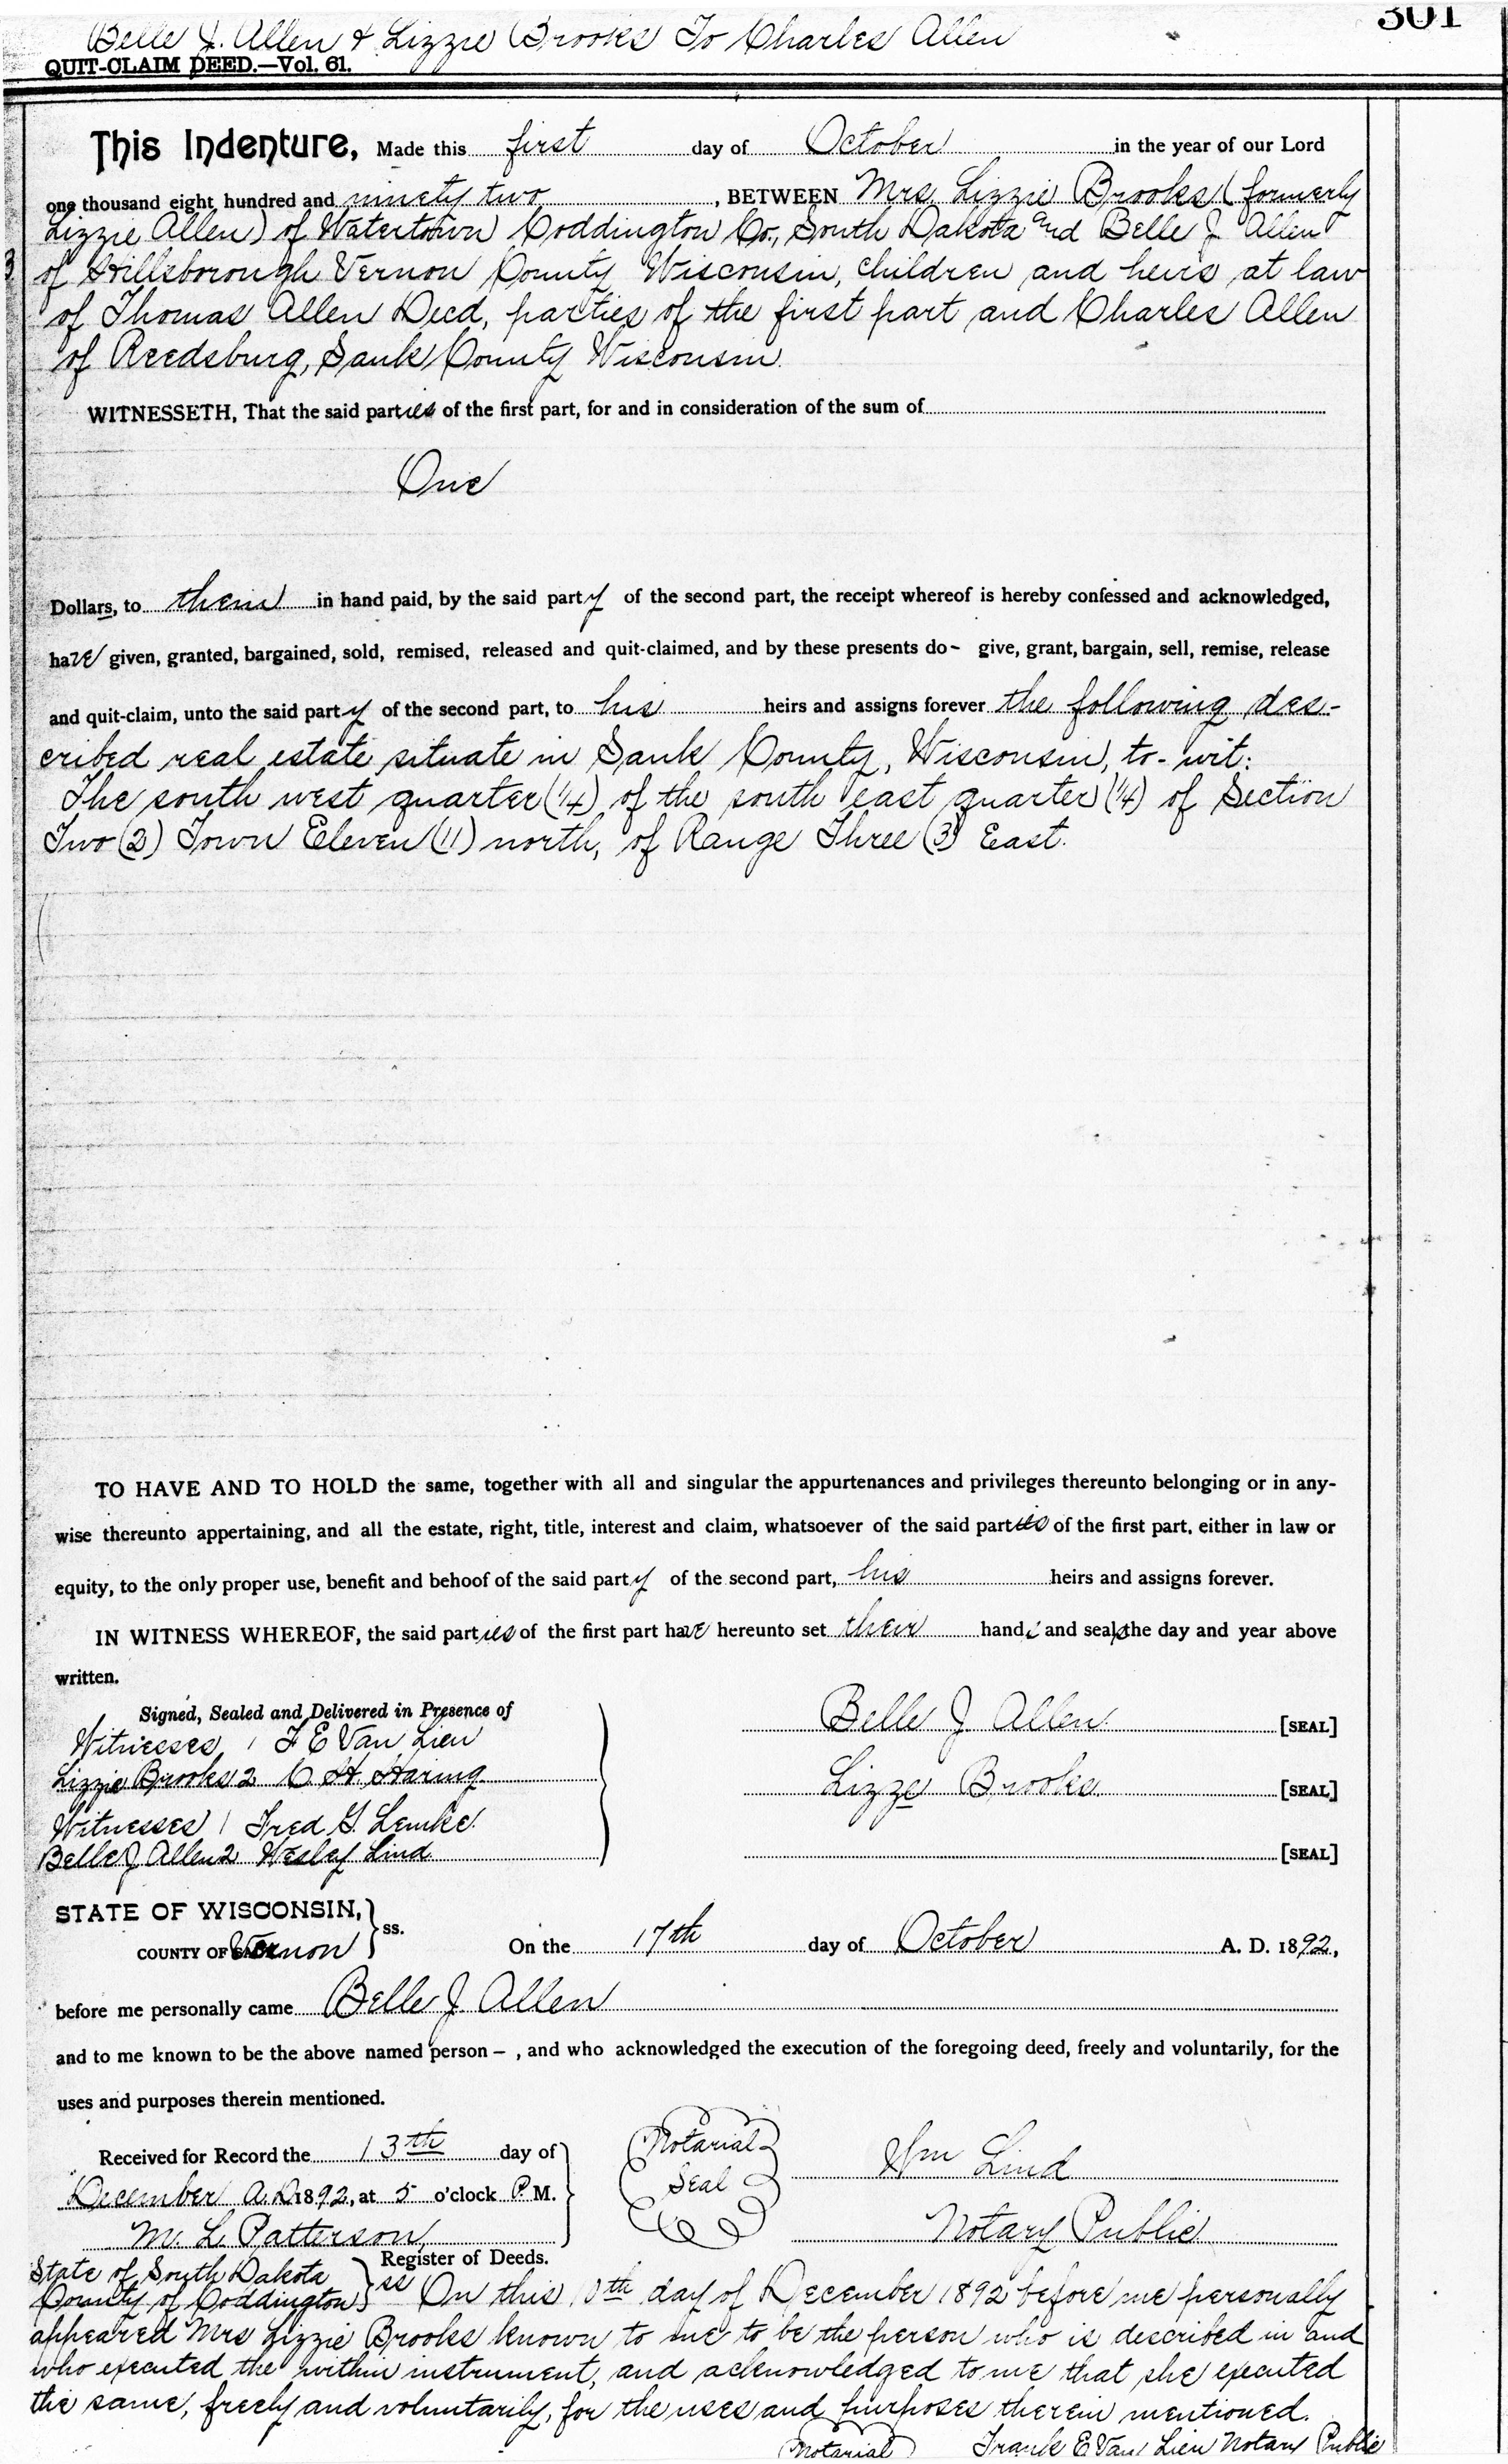 301
Belle J. Allen & Lizzie Brooks To Charles Allen
QUIT-CLAIM DEED.—Vol. 61.
This Indenture, Made this first day of October in the year of our Lord
one thousand eight hundred and ninety two, BETWEEN Mrs. Lizzie Brooks (formerly
Lizzie Allen) of Watertown Coddington Co., South Dakota and Belle J Allen
of Hillsborough Vernon County Wisconsin, children and heirs at law
of Thomas Allen Decd, parties of the first part and Charles Allen
of Reedsburg, Sauk County Wisconsin.
WITNESSETH, That the said parties of the first part, for and in consideration of the sum of
One
Dollars, to them in hand paid, by the said party of the second part, the receipt whereof is hereby confessed and acknowledged,
have given, granted, bargained, sold, remised, released and quit-claimed, and by these presents do - give, grant, bargain, sell, remise, release
and quit-claim, unto the said party of the second part, to his heirs and assigns forever the following des-
cribed real estate situate in Sauk County, Wisconsin, to-wit:
The south west quarter (1/4) of the south east quarter (1/4) of Section
Two (2) Town Eleven (11) north, of Range Three (3) East.
TO HAVE AND TO HOLD the same, together with all and singular the appurtenances and privileges thereunto belonging or in any-
wise thereunto appertaining, and all the estate, right, title, interest and claim, whatsoever of the said parties of the first part, either in law or
equity, to the only proper use, benefit and behoof of the said party of the second part, his heirs and assigns forever.
IN WITNESS WHEREOF, the said parties of the first part have hereunto set their hands and seals the day and year above
written.
Signed, Sealed and Delivered in Presence of
Witnesses 1 F E Van Lien
Lizzie Brooks 2 C H Haring
Witnesses 1 Fred G. Lemke.
Belle J Allen 2 Wesley Lind
Belle J Allen. [SEAL]
Lizze Brooks. [SEAL]
[SEAL]
STATE OF WISCONSIN,
COUNTY OF Vernon } ss. On the 17th day of October A. D. 1892,
before me personally came Belle J. Allen
and to me known to be the above named person - , and who acknowledged the execution of the foregoing deed, freely and voluntarily, for the
uses and purposes therein mentioned.
Received for Record the 13th day of
December A.D. 1892, at 5 o'clock P. M.
M. L. Patterson,
Register of Deeds.
Notarial
Seal
Wm Lind
Notary Public
State of South Dakota
County of Coddington } ss On this 10th day of December 1892 before me personally
appeared Mrs Lizzie Brooks known to me to be the person who is described in and
who executed the within instrument, and acknowledged to me that she executed
the same, freely and voluntarily, for the uses and purposes therein mentioned.
Notarial Frank E Van Lien Notary Public